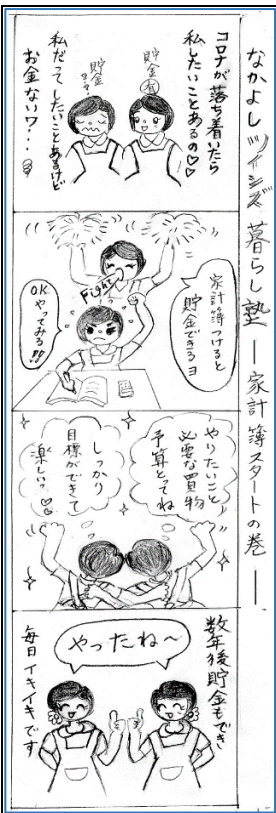 なかよしツインズ 暮らし塾 ― 家計簿スタートの巻 ―
コロナが落ち着いたら
私したいことあるの♡♡
貯金
有
貯金
私だってしたいことあるけど
お金ないワ・・・
家計簿つけると
貯金できるヨ
Fight
O.K.
やってみる!!
やりたいこと
必要な買物
予算とってね
しっかり
目標ができて
楽しいっ♡♡
数年後貯金もでき
やったね〜
毎日イキイキです